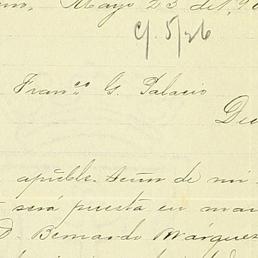 Mayo 23 del
C/. 5/26
Fran.co G. Palacio
apble. Señor de mi
será puesta en man
D. Bernardo Márquez